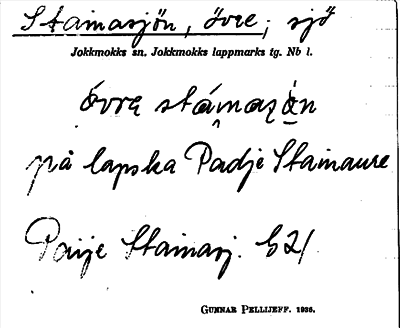 Stainasjön, övre; sjö
Jokkmokks sn. Jokkmokks lappmarks tg. Nb l.
övre
på lapska Padje Stainaure
Stainasj. G21
GUNNAR PELLIJEFF. 1936.